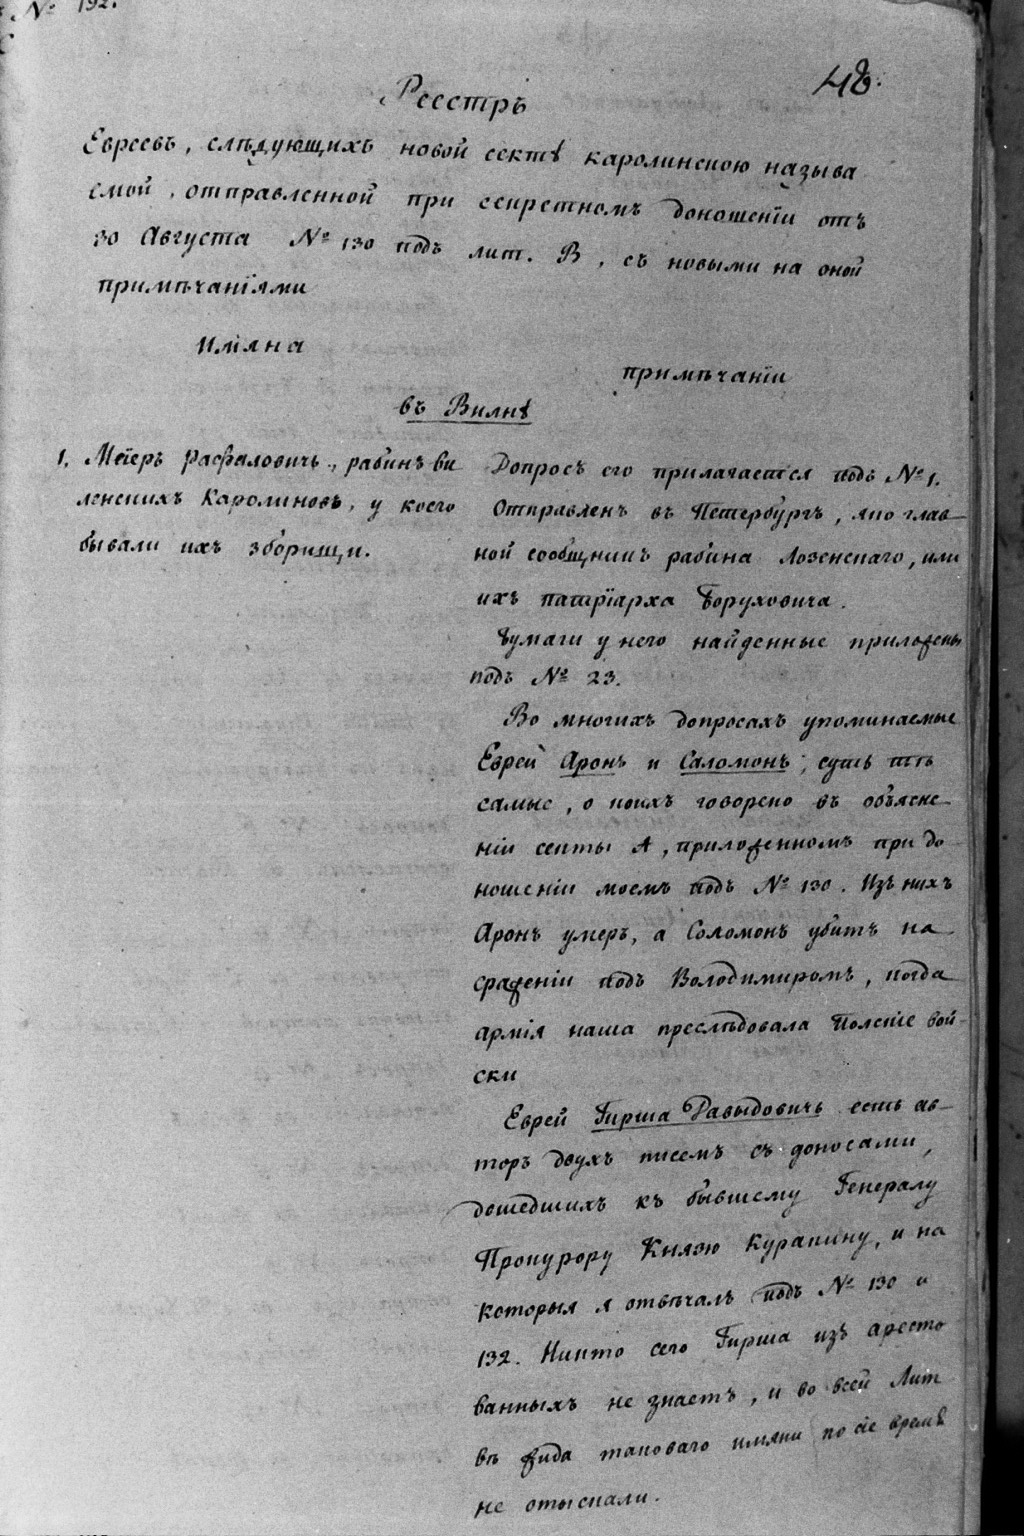 № 192.
48.
Реестръ
Евреевъ, слѣдующихъ новой сектѣ каролинскою называ
емой, отправленной при секретномъ доношенїи отъ
30 Августа № 130 подъ лит. В, съ новыми на оной
примѣчанїями
имяна
примѣчанїи
въ Вилнѣ
1. Меїеръ Рафаловичь, рабинъ ви
ленскихъ Каролиновъ, у коего
бывали ихъ зборищи.
Допросъ его прилагается подъ № 1.
Отправленъ въ Петербургъ, яко глав
ной сообщникъ рабина Лозенскаго, или
ихъ патрїарха Боруховича.
Бумаги у него найденные приложены
подъ № 23.
Во многихъ допросахъ упоминаемые
Еврей Аронъ и Саломонъ, суть тѣ
самые, о коихъ говорено въ объясне
нїи секты А, приложенномъ при до
ношенїи моемъ подъ № 130. Изъ нихъ
Аронъ умеръ, а Соломонъ убитъ на
сраженїи подъ Володимиромъ, когда
армїя наша преслѣдовала Полскїе вой
ски
Еврей Гирша Давыдовичь есть ав
торъ двухъ писемъ съ доносами,
дошедшихъ къ бывшему Генералу
Прокурору Князю Куракину, и на
которыя я отвѣчалъ подъ № 130 и
132. Никто сего Гирша изъ аресто
ванныхъ не знаетъ, и во всей Лит
вѣ жида таковаго имяни по сїе времѣ
не отыскали.